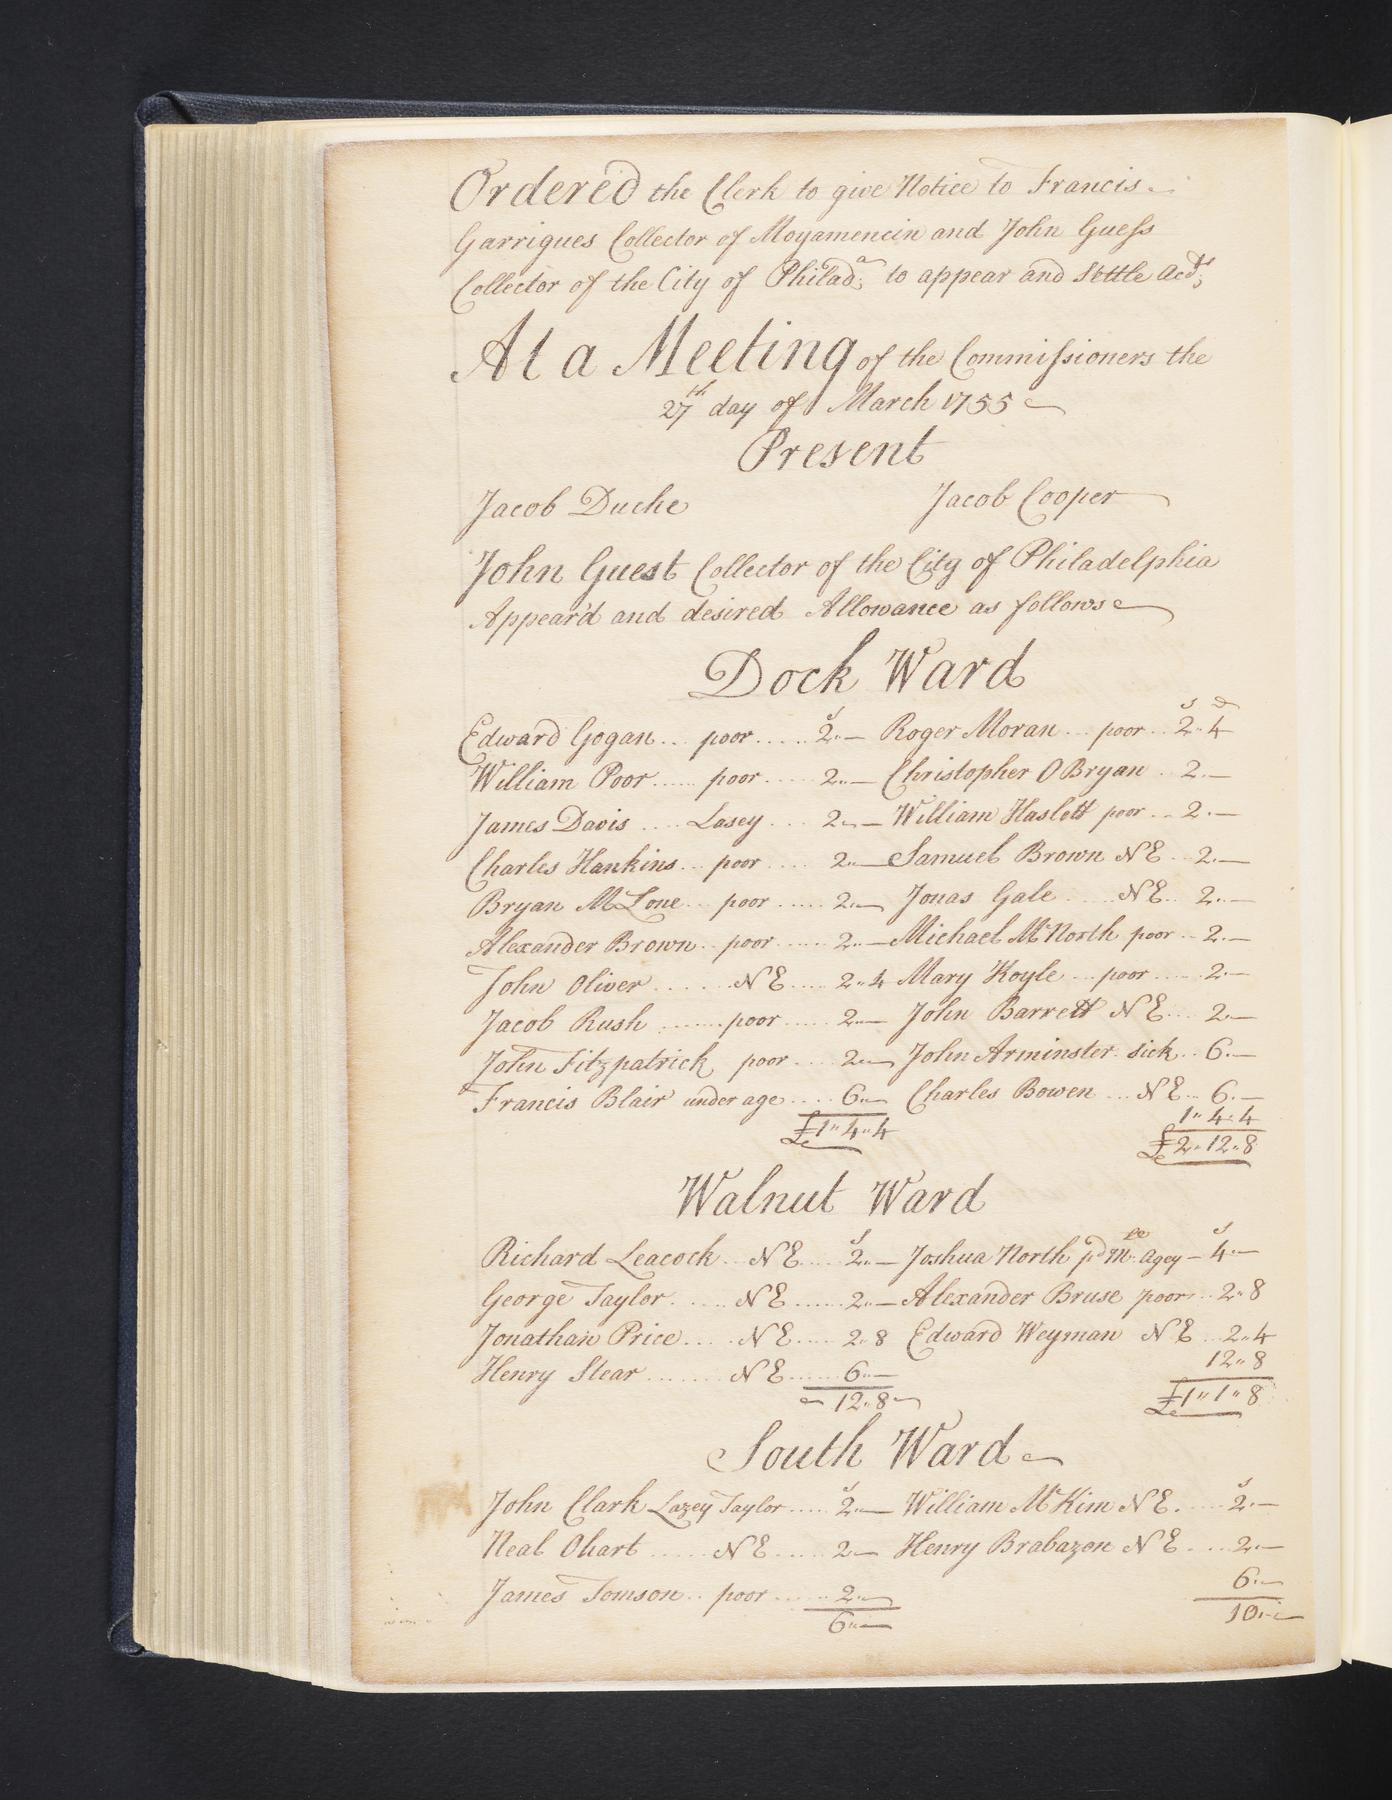 Ordered the Clerk to give Notice to Francis
Garrigues Collector of Moyamencin and John Guess
Collector of the City of Philad.a to appear and Settle Acd.ts;
At a Meeting of the Commissioners the
27th day of March 1755
Present
Jacob Duche Jacob Cooper
John Guest Collector of the City of Philadelphia
Appear'd and desired Allowance as follows
Dock Ward
Edward Gogan ... poor ..... 2 s .. — Roger Moran ... poor .. 2 s .. 4 d
William Poor ..... poor ..... 2 .. — Christopher O Bryan .. 2 .. —
James Davis .... Lasey .... 2 .. — William Haslett poor ... 2 .. —
Charles Hankins ... poor ..... 2 .. — Samuel Brown N E .. 2 .. —
Bryan McLone ... poor ..... 2 .. — Jonas Gale ..... N E .. 2 .. —
Alexander Brown .. poor ...... 2 .. — Michael McNorth poor ... 2 .. —
John Oliver ...... N E .... 2 .. 4 Mary Koyle ... poor ..... 2 .. —
Jacob Rush ....... poor ..... 2 .. — John Barrett N E .... 2 .. —
John Fitzpatrick poor .... 2 .. — John Arminster sick .. 6 .. —
Francis Blair under age .... 6 .. — Charles Bowen ... N E .. 6 .. —
£1 .. 4 .. 4 1 .. 4 .. 4
£2 .. 12 .. 8
Walnut Ward
Richard Leacock ... N E .... 2 s .. — Joshua North pd Mc Agey — 4 s .. —
George Taylor ..... N E ..... 2 .. — Alexander Bruse poor ... 2 .. 8
Jonathan Price .... N E ..... 2 .. 8 Edward Weyman N E ... 2 .. 4
Henry Stear ....... N E ...... 6 .. — 12 .. 8
12 .. 8 £1 .. 1 .. 8
South Ward
John Clark Lazey Taylor ..... 2 s .. — William McKim N E ..... 2 s .. —
Neal Ohart ...... N E ..... 2 .. — Henry Brabazon N E .... 2 .. —
James Tomson .. poor ...... 2 .. — 6 .. —
6 .. — 10 .. —